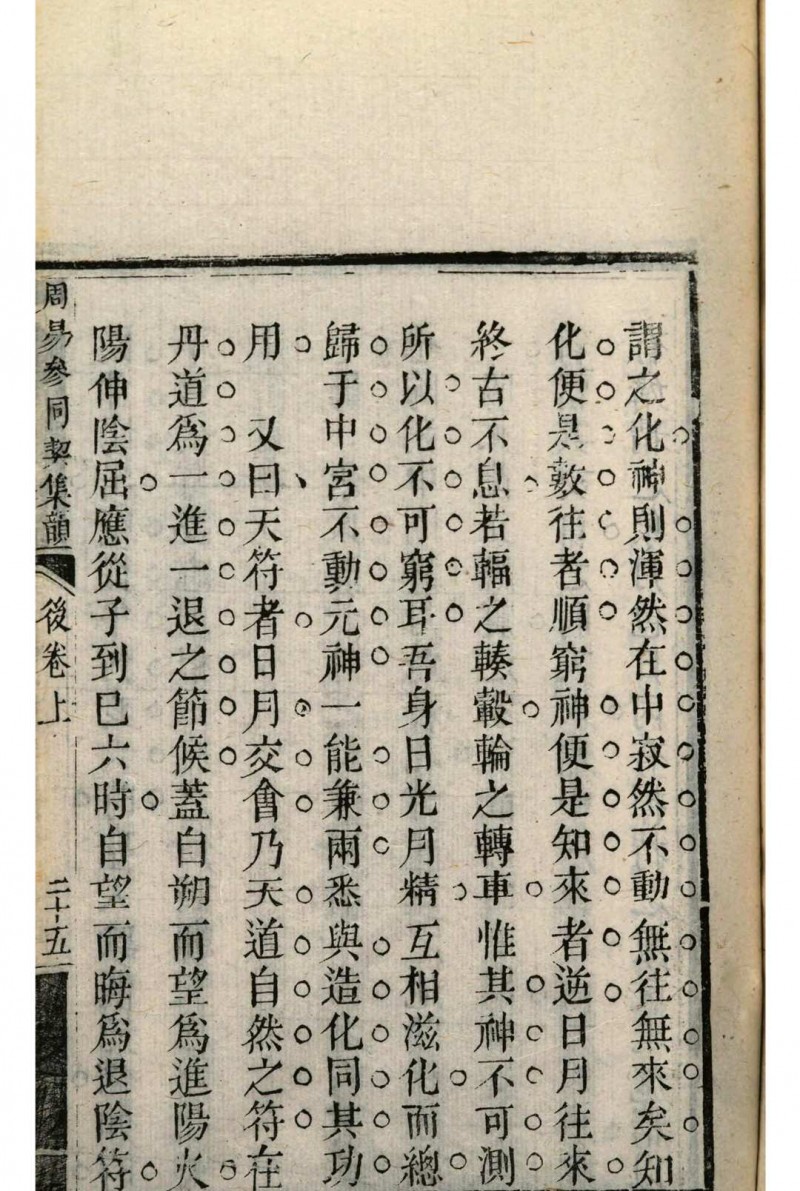 謂之化神則渾然在中寂然不動無往無來矣知
化便是數往者順窮神便是知來者逆日月往來
終古不息若輻之輳轂輪之轉車惟其神不可測
所以化不可窮耳吾身日光月精互相滋化而總
歸于中宮不動元神一能兼兩悉與造化同其功
用　又曰天符者日月交會乃天道自然之符在
丹道為一進一退之節候蓋自朔而望為進陽火
陽伸陰屈應從子到巳六時自望而晦為退陰符
周易參同契集韻　後卷上　二十五